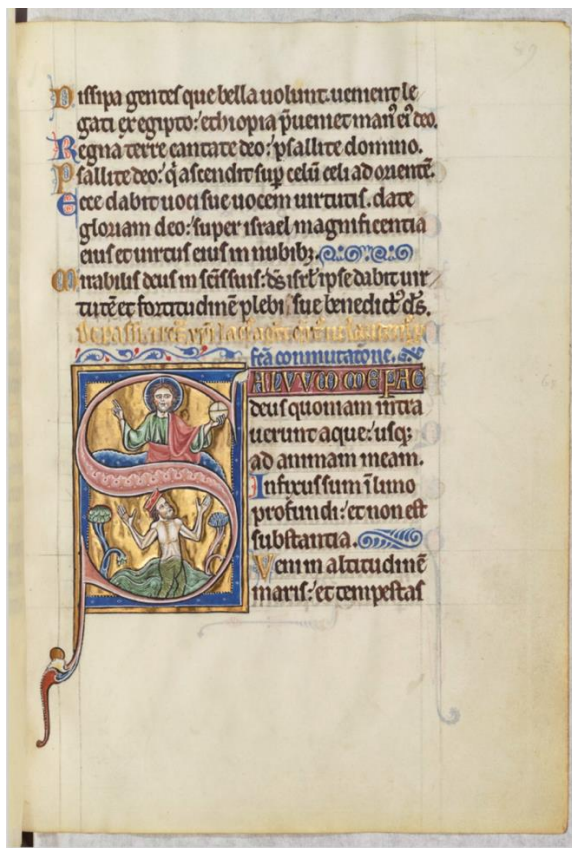 89
Dissipa gentes que bella uolunt. uenient le
gati ex egipto: ethiopia p̄ueniet man᷒ ei᷒ deo.
Regna terre cantate deo: psallite domino.
Psallite deo: q̄ ascendit sup̄ celū celi ad orientē.
Ecce dabit uoci sue uocem uirtutis. date
gloriam deo: super israel magnificentia
eius et uirtus eius in nubibꝫ.
Mirabilis deus in scīs suis: d̄s isrl̄ ipse dabit uir
tutē et fortitudinē plebi sue benedict᷒ d̄s.
feā conmutatone.
SALVVM ME FAC
deus quoniam intra
uerunt aque: usqꝫ
ad animam meam.
Infixus sum ī limo
profundi: et non est
substantia.
Veni in altitudinē
maris: et tempestas